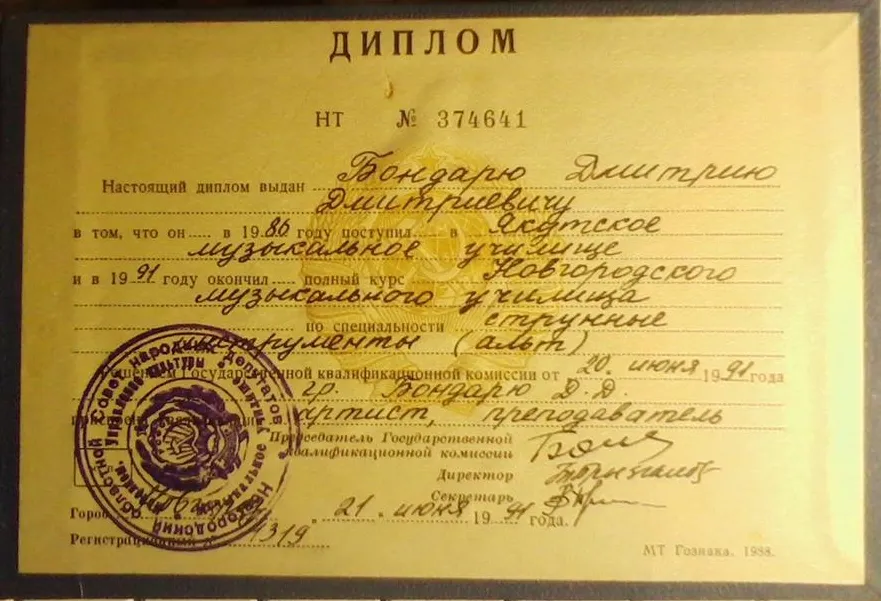 ДИПЛОМ
НТ № 374641
Настоящий диплом выдан Бондарю Дмитрию
Дмитриевичу
в том, что он в 1986 году поступил в Якутское
музыкальное училище
и в 1991 году окончил полный курс Новгородского
музыкального училища
по специальности струнные
инструменты (альт)
Решением Государственной квалификационной комиссии от 20 июня 1991 года
гр. Бондарю Д. Д.
артист, преподаватель
Председатель Государственной
квалификационной комиссии
Директор
Секретарь
Город 21 июня 1991 года.
Регистрационный № 4319
МТ Гознака. 1988.
Новгородский областной Совет народных депутатов
Управление культуры
музыкальное училище